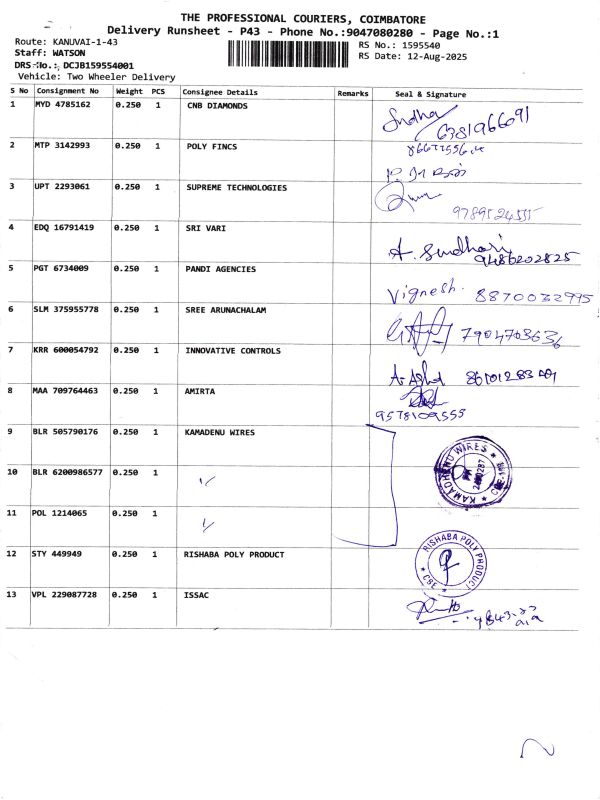 THE PROFESSIONAL COURIERS, COIMBATORE
Delivery Runsheet - P43 - Phone No.:9047080280 - Page No.:1
Route: KANUVAI-1-43
RS No.: 1595540
Staff: WATSON
RS Date: 12-Aug-2025
DRS No.: DCJB159554001
Vehicle: Two Wheeler Delivery
S No Consignment No Weight PCS Consignee Details Remarks Seal & Signature
1 MYD 4785162 0.250 1 CNB DIAMONDS Sudha
6381966091
2 MTP 3142993 0.250 1 POLY FINCS
3 UPT 2293061 0.250 1 SUPREME TECHNOLOGIES
9789524555
4 EDQ 16791419 0.250 1 SRI VARI A. Sundhari
9486202825
5 PGT 6734009 0.250 1 PANDI AGENCIES Vignesh. 8870032995
6 SLM 375955778 0.250 1 SREE ARUNACHALAM 7904703636
7 KRR 600054792 0.250 1 INNOVATIVE CONTROLS
8 MAA 709764463 0.250 1 AMIRTA
9578109555
9 BLR 505790176 0.250 1 KAMADENU WIRES KAMADHENU WIRES
10 BLR 6200986577 0.250 1
11 POL 1214065 0.250 1
12 STY 449949 0.250 1 RISHABA POLY PRODUCT RISHABA POLY PRODUCT CBE
13 VPL 229087728 0.250 1 ISSAC